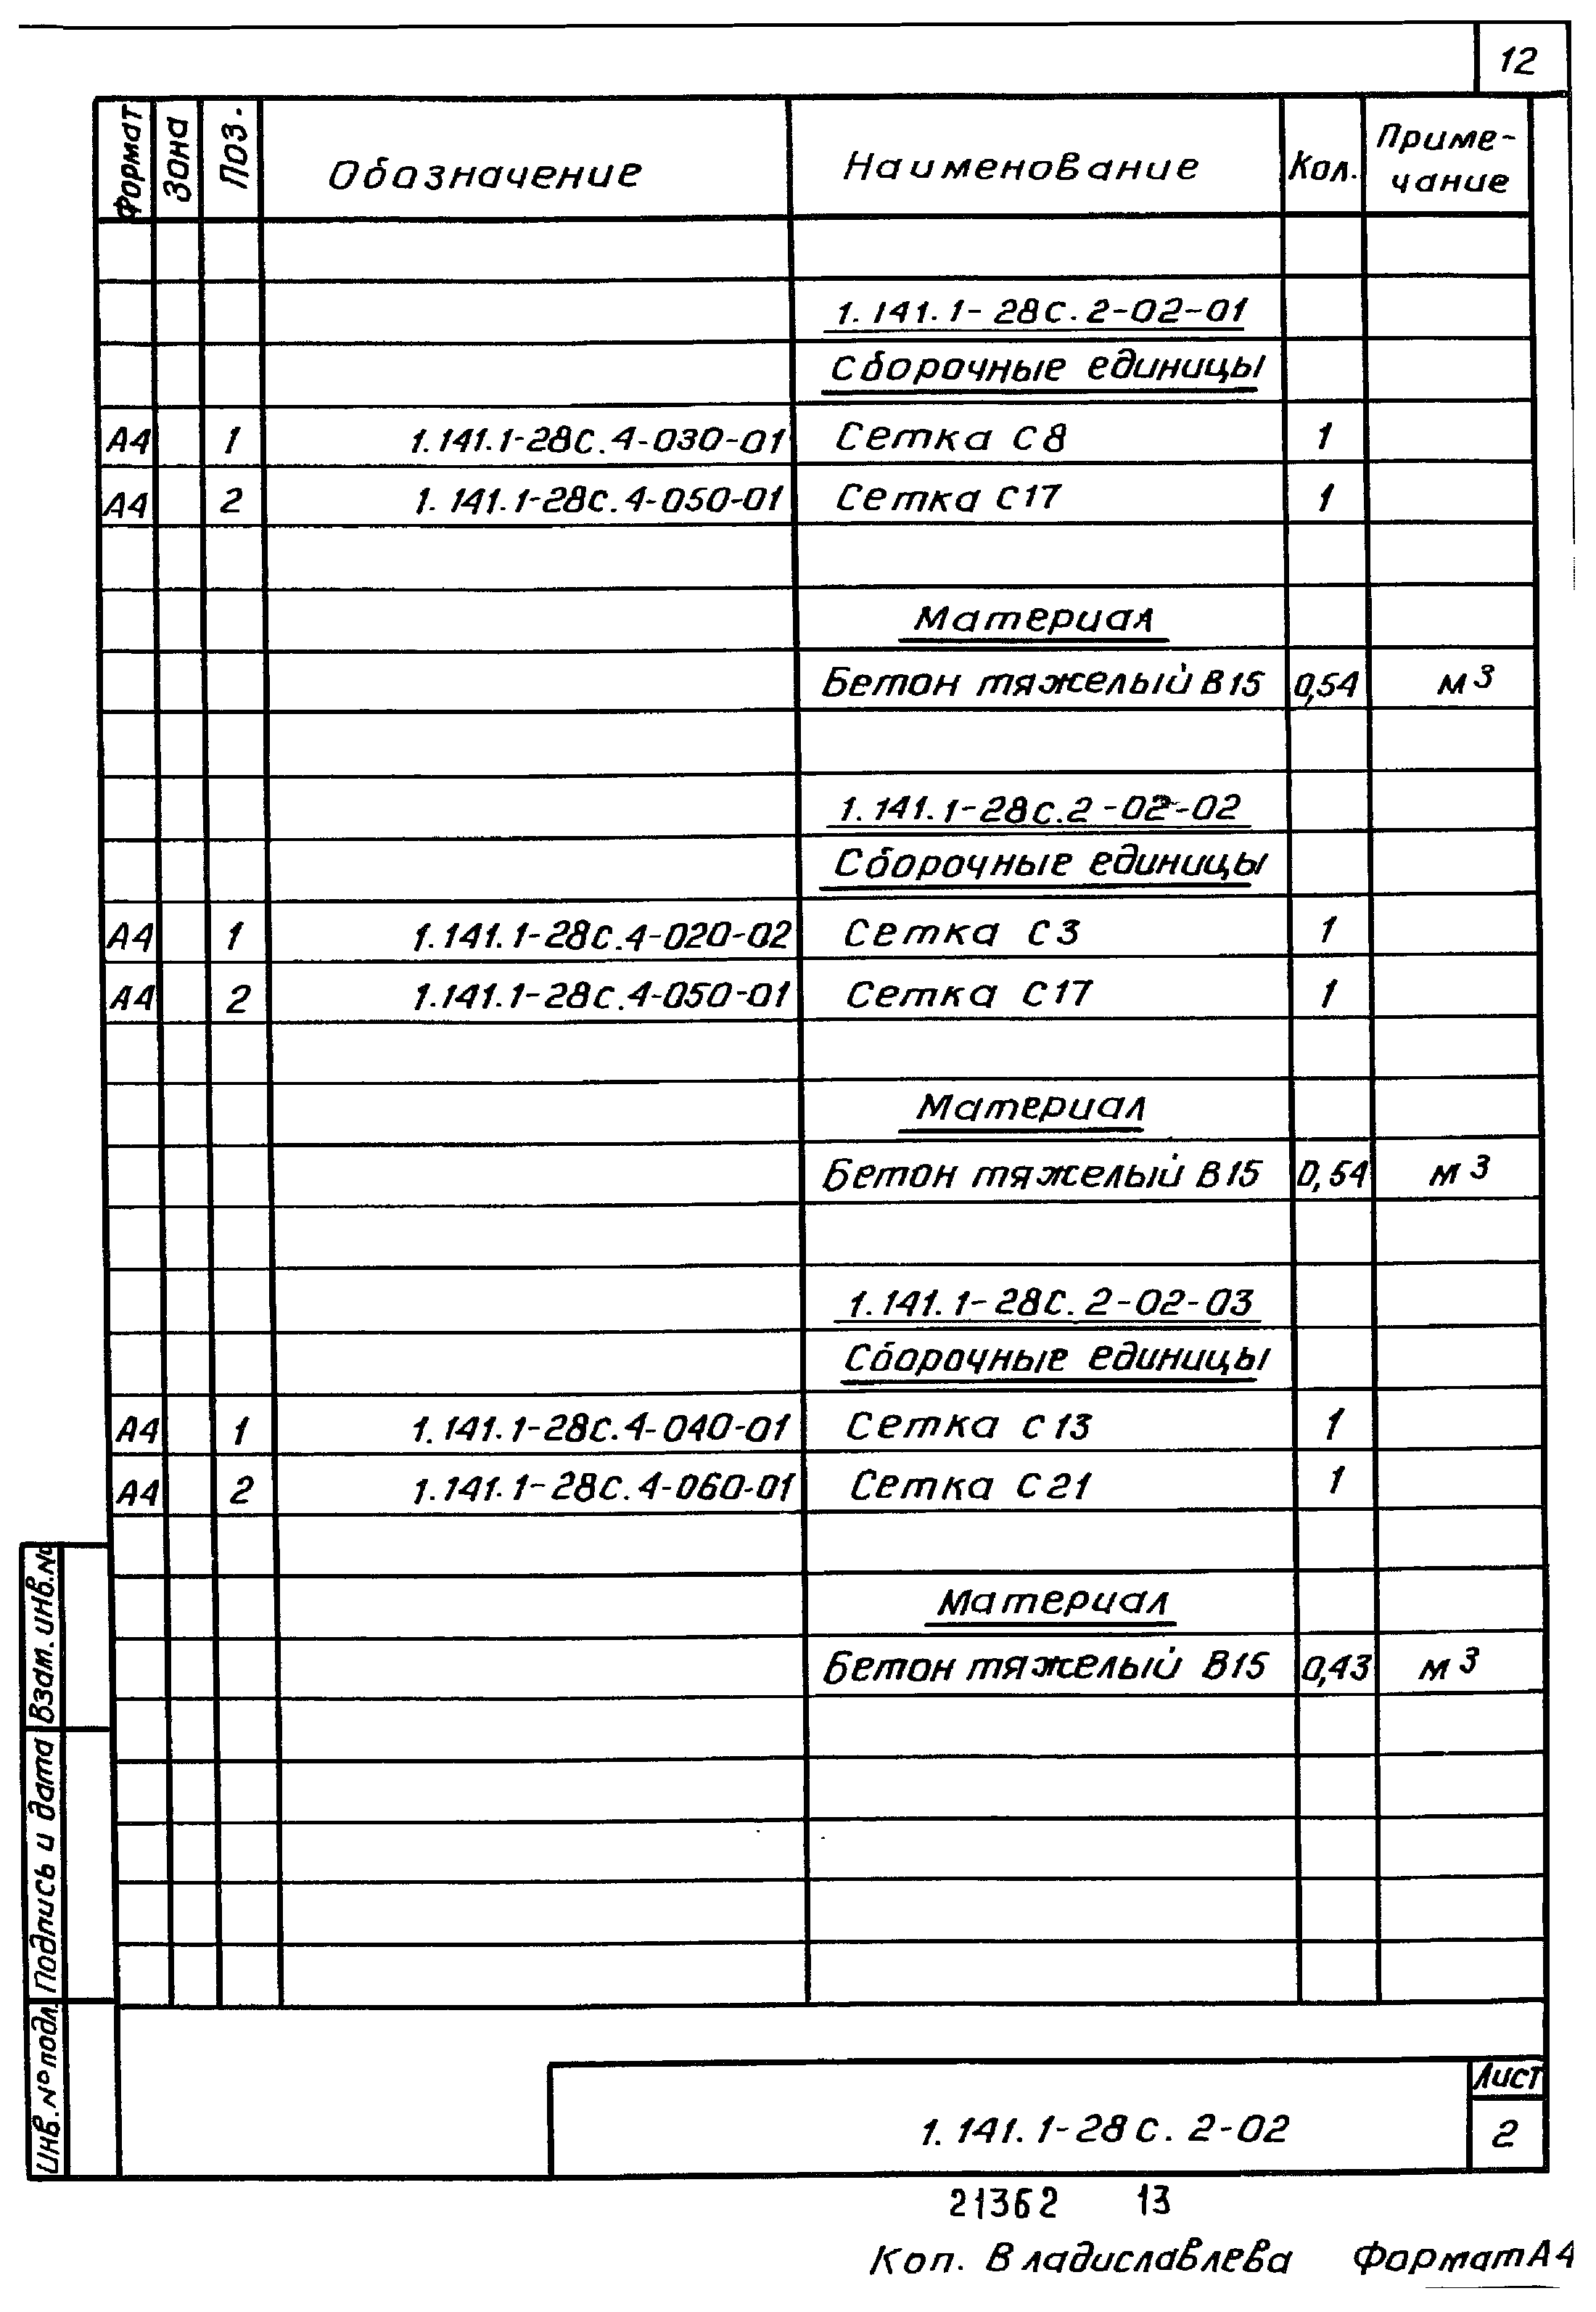 12
Формат Зона Поз. Обозначение Наименование Кол. Приме-
чание
1.141.1-28С.2-02-01
Сборочные единицы
А4 1 1.141.1-28С.4-030-01 Сетка С8 1
А4 2 1.141.1-28С.4-050-01 Сетка С17 1
Материал
Бетон тяжелый В15 0,54 м3
1.141.1-28С.2-02-02
Сборочные единицы
А4 1 1.141.1-28С.4-020-02 Сетка С3 1
А4 2 1.141.1-28С.4-050-01 Сетка С17 1
Материал
Бетон тяжелый В15 0,54 м3
1.141.1-28С.2-02-03
Сборочные единицы
А4 1 1.141.1-28С.4-040-01 Сетка С13 1
А4 2 1.141.1-28С.4-060-01 Сетка С21 1
Материал
Бетон тяжелый В15 0,43 м3
Взам.инв.№
Подпись и дата
Инв.№подл.
1.141.1-28С.2-02
Лист
2
21362 13
Коп. Владиславлева Формат А4